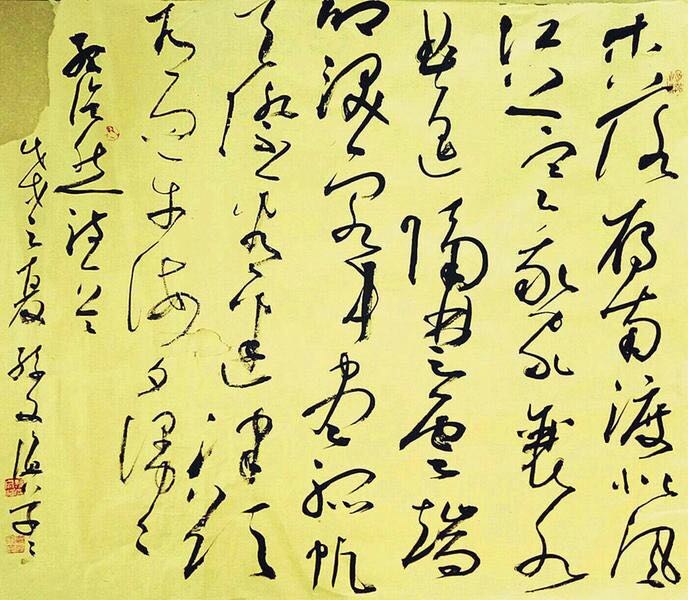 木落雁南渡北風
江上寒我家襄水
曲遥隔楚雲端
鄉淚客中盡孤帆
天際看迷津欲
有問平海夕漫漫
孟浩然詩
戊戌之夏